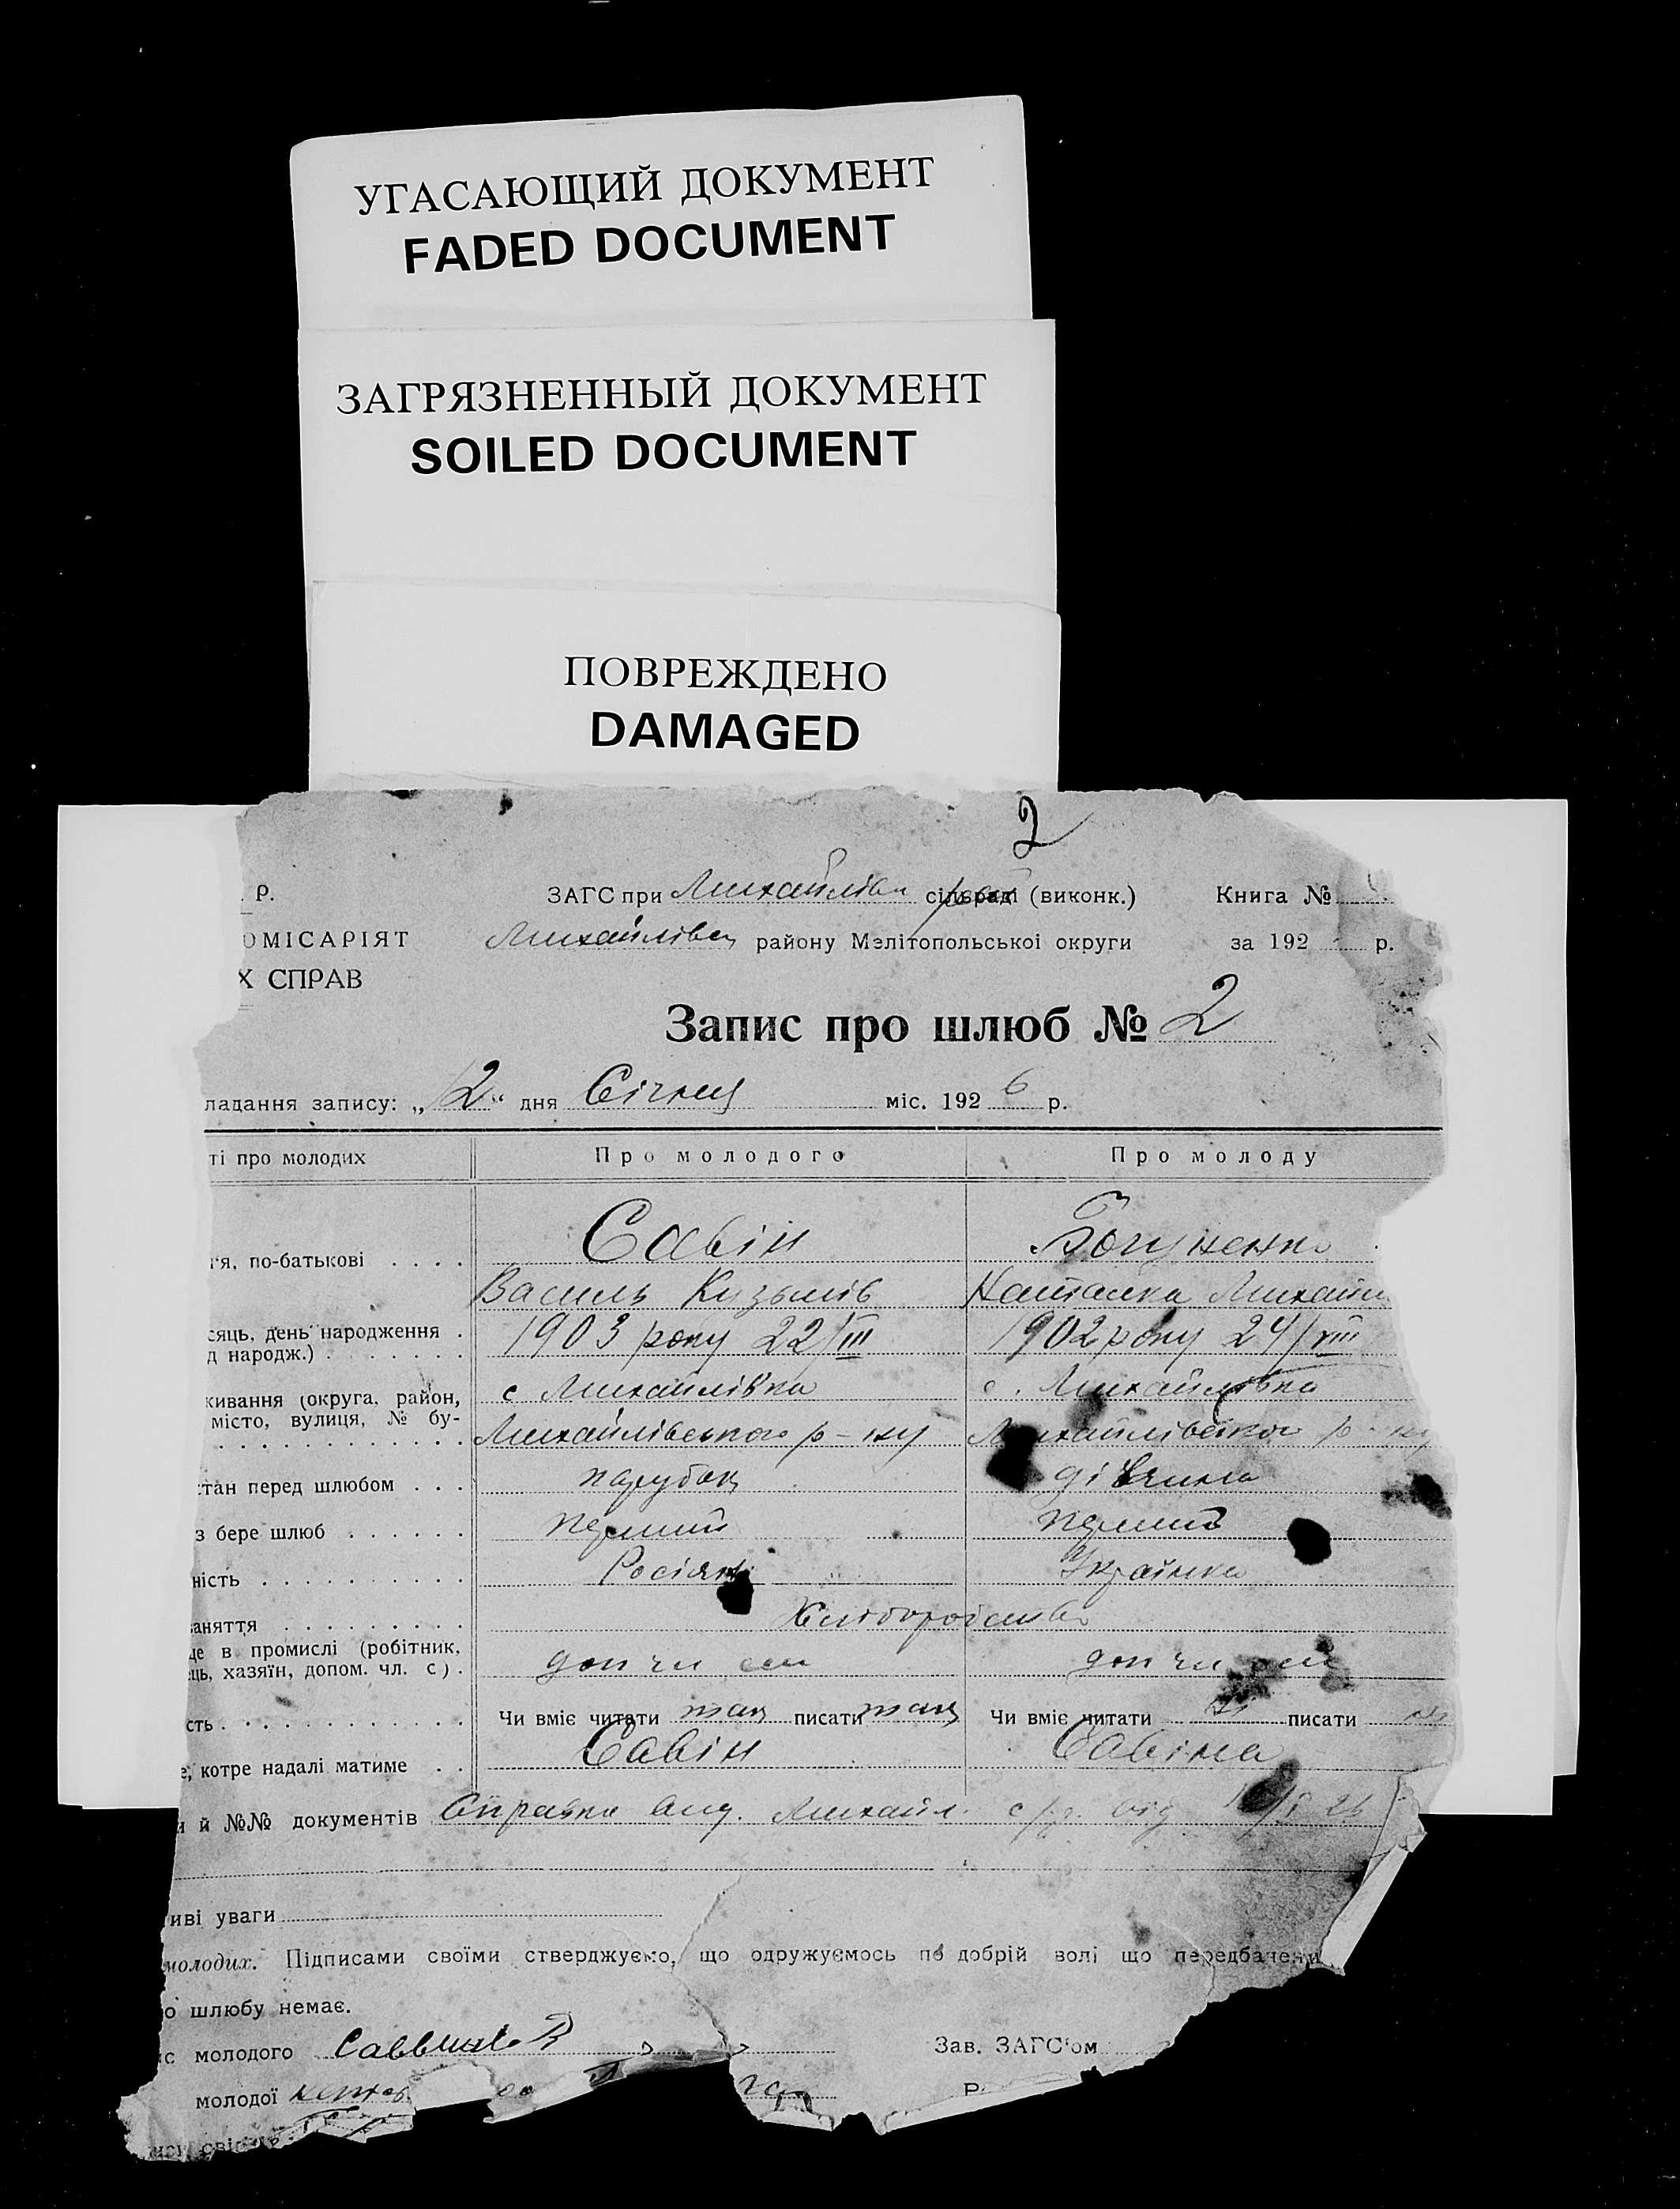 УГАСАЮЩИЙ ДОКУМЕНТ
FADED DOCUMENT
ЗАГРЯЗНЕННЫЙ ДОКУМЕНТ
SOILED DOCUMENT
ПОВРЕЖДЕНО
DAMAGED
2
р. ЗАГС при Михайлівсь сільраді (виконк.) Книга №
ОМІСАРІЯТ Михайлівсь району Мелітопольської округи за 192 р.
Х СПРАВ
Запис про шлюб № 2
ладання запису: „12“ дня Січня міс. 1926 р.
ті про молодих Про молодого Про молоду
Савін
'я, по-батькові
Василь Кузьмів Наталка Михайл
сяць, день народження 1903 року 22/III 1902 року 24/VIII
д народж.)
живання (округа, район, с Михайлівка с. Михайлівка
місто, вулиця, № бу-
Михайлівського р-ну Михайлівського р-ну
стан перед шлюбом парубок дівчина
з бере шлюб перший перший
ність Росіян Українка
аняття Хліборобство
це в промислі (робітник, доп чл сім доп чл сім
ць, хазяїн, допом. чл. с)
сть Чи вміє читати так писати так Чи вміє читати писати
е, котре надалі матиме Савін Савіна
и й №№ документів Справка вид. Михайл. с/р. від
иві уваги
молодих. Підписами своїми стверджуємо, що одружуємось по добрій волі що передбачени
о шлюбу немає.
с молодого Зав. ЗАГС'ом
молодої